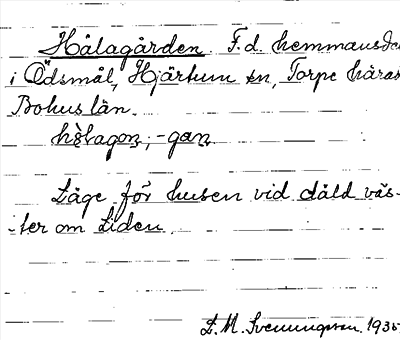 Hålagården F.d. hemmansdel
i Ödsmål, Hjärtum sn, Torpe härad
Bohus län.
hålagoɳ, -gaɳ.
Läge för husen vid dåld väs-
ter om Liden.
D. M. Svenungsson. 1935